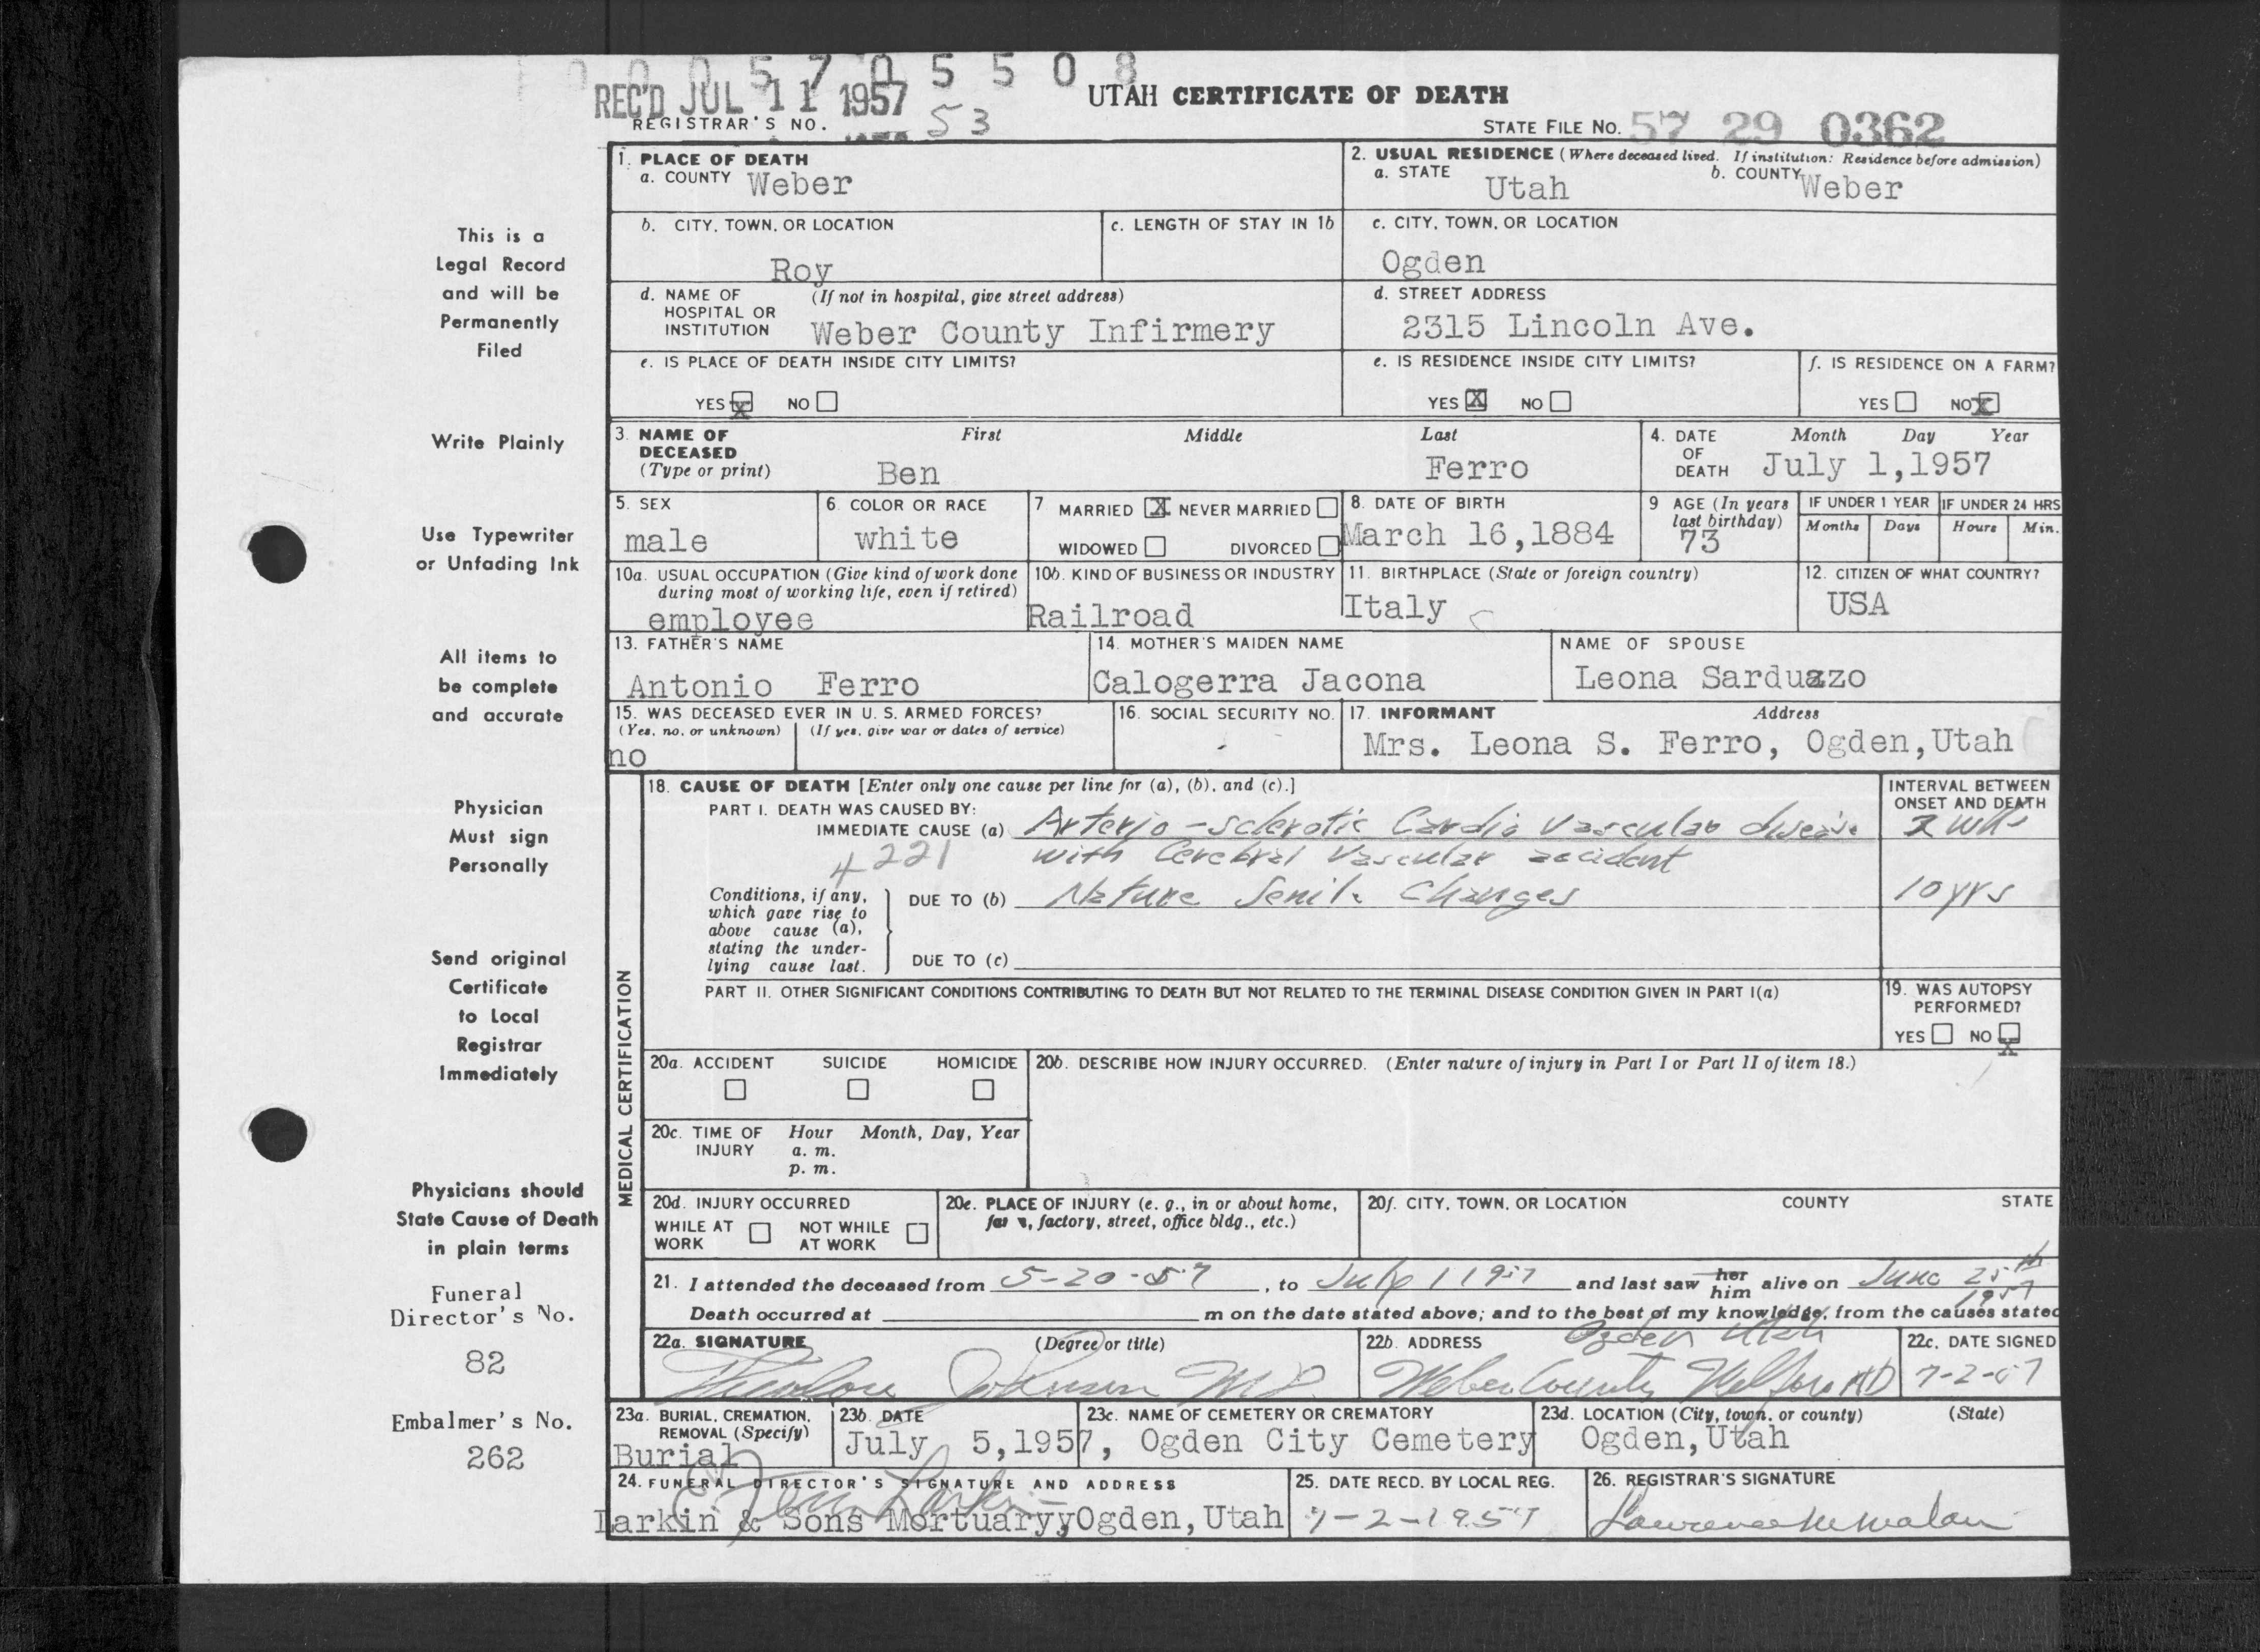 0 0 0 5 7 0 5 5 0 8
REC'D JUL 11 1957
UTAH CERTIFICATE OF DEATH
REGISTRAR'S NO. 53
STATE FILE NO. 57 29 0362
1. PLACE OF DEATH
a. COUNTY Weber
2. USUAL RESIDENCE (Where deceased lived. If institution: Residence before admission)
a. STATE Utah b. COUNTY Weber
b. CITY, TOWN, OR LOCATION Roy
c. LENGTH OF STAY IN 1b
c. CITY, TOWN, OR LOCATION
Ogden
d. NAME OF HOSPITAL OR INSTITUTION (If not in hospital, give street address)
Weber County Infirmery
d. STREET ADDRESS
2315 Lincoln Ave.
e. IS PLACE OF DEATH INSIDE CITY LIMITS?
YES X NO
e. IS RESIDENCE INSIDE CITY LIMITS?
YES X NO
f. IS RESIDENCE ON A FARM?
YES NO X
3. NAME OF DECEASED (Type or print)
First Middle Last
Ben Ferro
4. DATE OF DEATH
Month Day Year
July 1,1957
5. SEX
male
6. COLOR OR RACE
white
7 MARRIED X NEVER MARRIED
WIDOWED DIVORCED
8. DATE OF BIRTH
March 16,1884
9 AGE (In years last birthday)
73
IF UNDER 1 YEAR
Months Days
IF UNDER 24 HRS
Hours Min.
10a. USUAL OCCUPATION (Give kind of work done during most of working life, even if retired)
employee
10b. KIND OF BUSINESS OR INDUSTRY
Railroad
11. BIRTHPLACE (State or foreign country)
Italy
12. CITIZEN OF WHAT COUNTRY?
USA
13. FATHER'S NAME
Antonio Ferro
14. MOTHER'S MAIDEN NAME
Calogerra Jacona
NAME OF SPOUSE
Leona Sarduzzo
15. WAS DECEASED EVER IN U. S. ARMED FORCES?
(Yes, no, or unknown) (If yes, give war or dates of service)
no
16. SOCIAL SECURITY NO.
-
17. INFORMANT Address
Mrs. Leona S. Ferro, Ogden,Utah
18. CAUSE OF DEATH [Enter only one cause per line for (a), (b), and (c).]
INTERVAL BETWEEN ONSET AND DEATH
PART I. DEATH WAS CAUSED BY:
IMMEDIATE CAUSE (a) Arterio-sclerotic Cardio Vascular disease 2 wks
4221 with Cerebral Vascular accident
Conditions, if any, which gave rise to above cause (a), stating the underlying cause last.
DUE TO (b) Nature Senile Changes 10 yrs
DUE TO (c)
PART II. OTHER SIGNIFICANT CONDITIONS CONTRIBUTING TO DEATH BUT NOT RELATED TO THE TERMINAL DISEASE CONDITION GIVEN IN PART I(a)
19. WAS AUTOPSY PERFORMED?
YES NO X
MEDICAL CERTIFICATION
20a. ACCIDENT SUICIDE HOMICIDE
20b. DESCRIBE HOW INJURY OCCURRED. (Enter nature of injury in Part I or Part II of item 18.)
20c. TIME OF INJURY Hour Month, Day, Year
a. m.
p. m.
20d. INJURY OCCURRED
WHILE AT WORK NOT WHILE AT WORK
20e. PLACE OF INJURY (e. g., in or about home, farm, factory, street, office bldg., etc.)
20f. CITY, TOWN, OR LOCATION COUNTY STATE
21. I attended the deceased from 5-20-57, to July 1 1957 and last saw her him alive on June 25th 1957
Death occurred at m on the date stated above; and to the best of my knowledge, from the causes stated
22a. SIGNATURE (Degree or title)
Theodore Johnson MD.
22b. ADDRESS Ogden Utah
Weber County Welfare
22c. DATE SIGNED
7-2-57
23a. BURIAL, CREMATION, REMOVAL (Specify)
Burial
23b. DATE
July 5,1957,
23c. NAME OF CEMETERY OR CREMATORY
Ogden City Cemetery
23d. LOCATION (City, town, or county) (State)
Ogden,Utah
24. FUNERAL DIRECTOR'S SIGNATURE AND ADDRESS
Larkin & Sons MortuaryyOgden,Utah
25. DATE RECD. BY LOCAL REG.
7-2-1957
26. REGISTRAR'S SIGNATURE
This is a
Legal Record
and will be
Permanently
Filed
Write Plainly
Use Typewriter
or Unfading Ink
All items to
be complete
and accurate
Physician
Must sign
Personally
Send original
Certificate
to Local
Registrar
Immediately
Physicians should
State Cause of Death
in plain terms
Funeral
Director's No.
82
Embalmer's No.
262